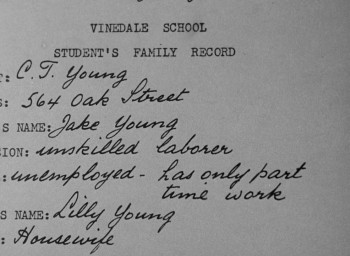 VINEDALE SCHOOL
STUDENT'S FAMILY RECORD
: C.T. Young
: 564 Oak Street
S NAME: Jake Young
ION: unskilled laborer
: unemployed - has only part
time work
S NAME: Lilly Young
: Housewife